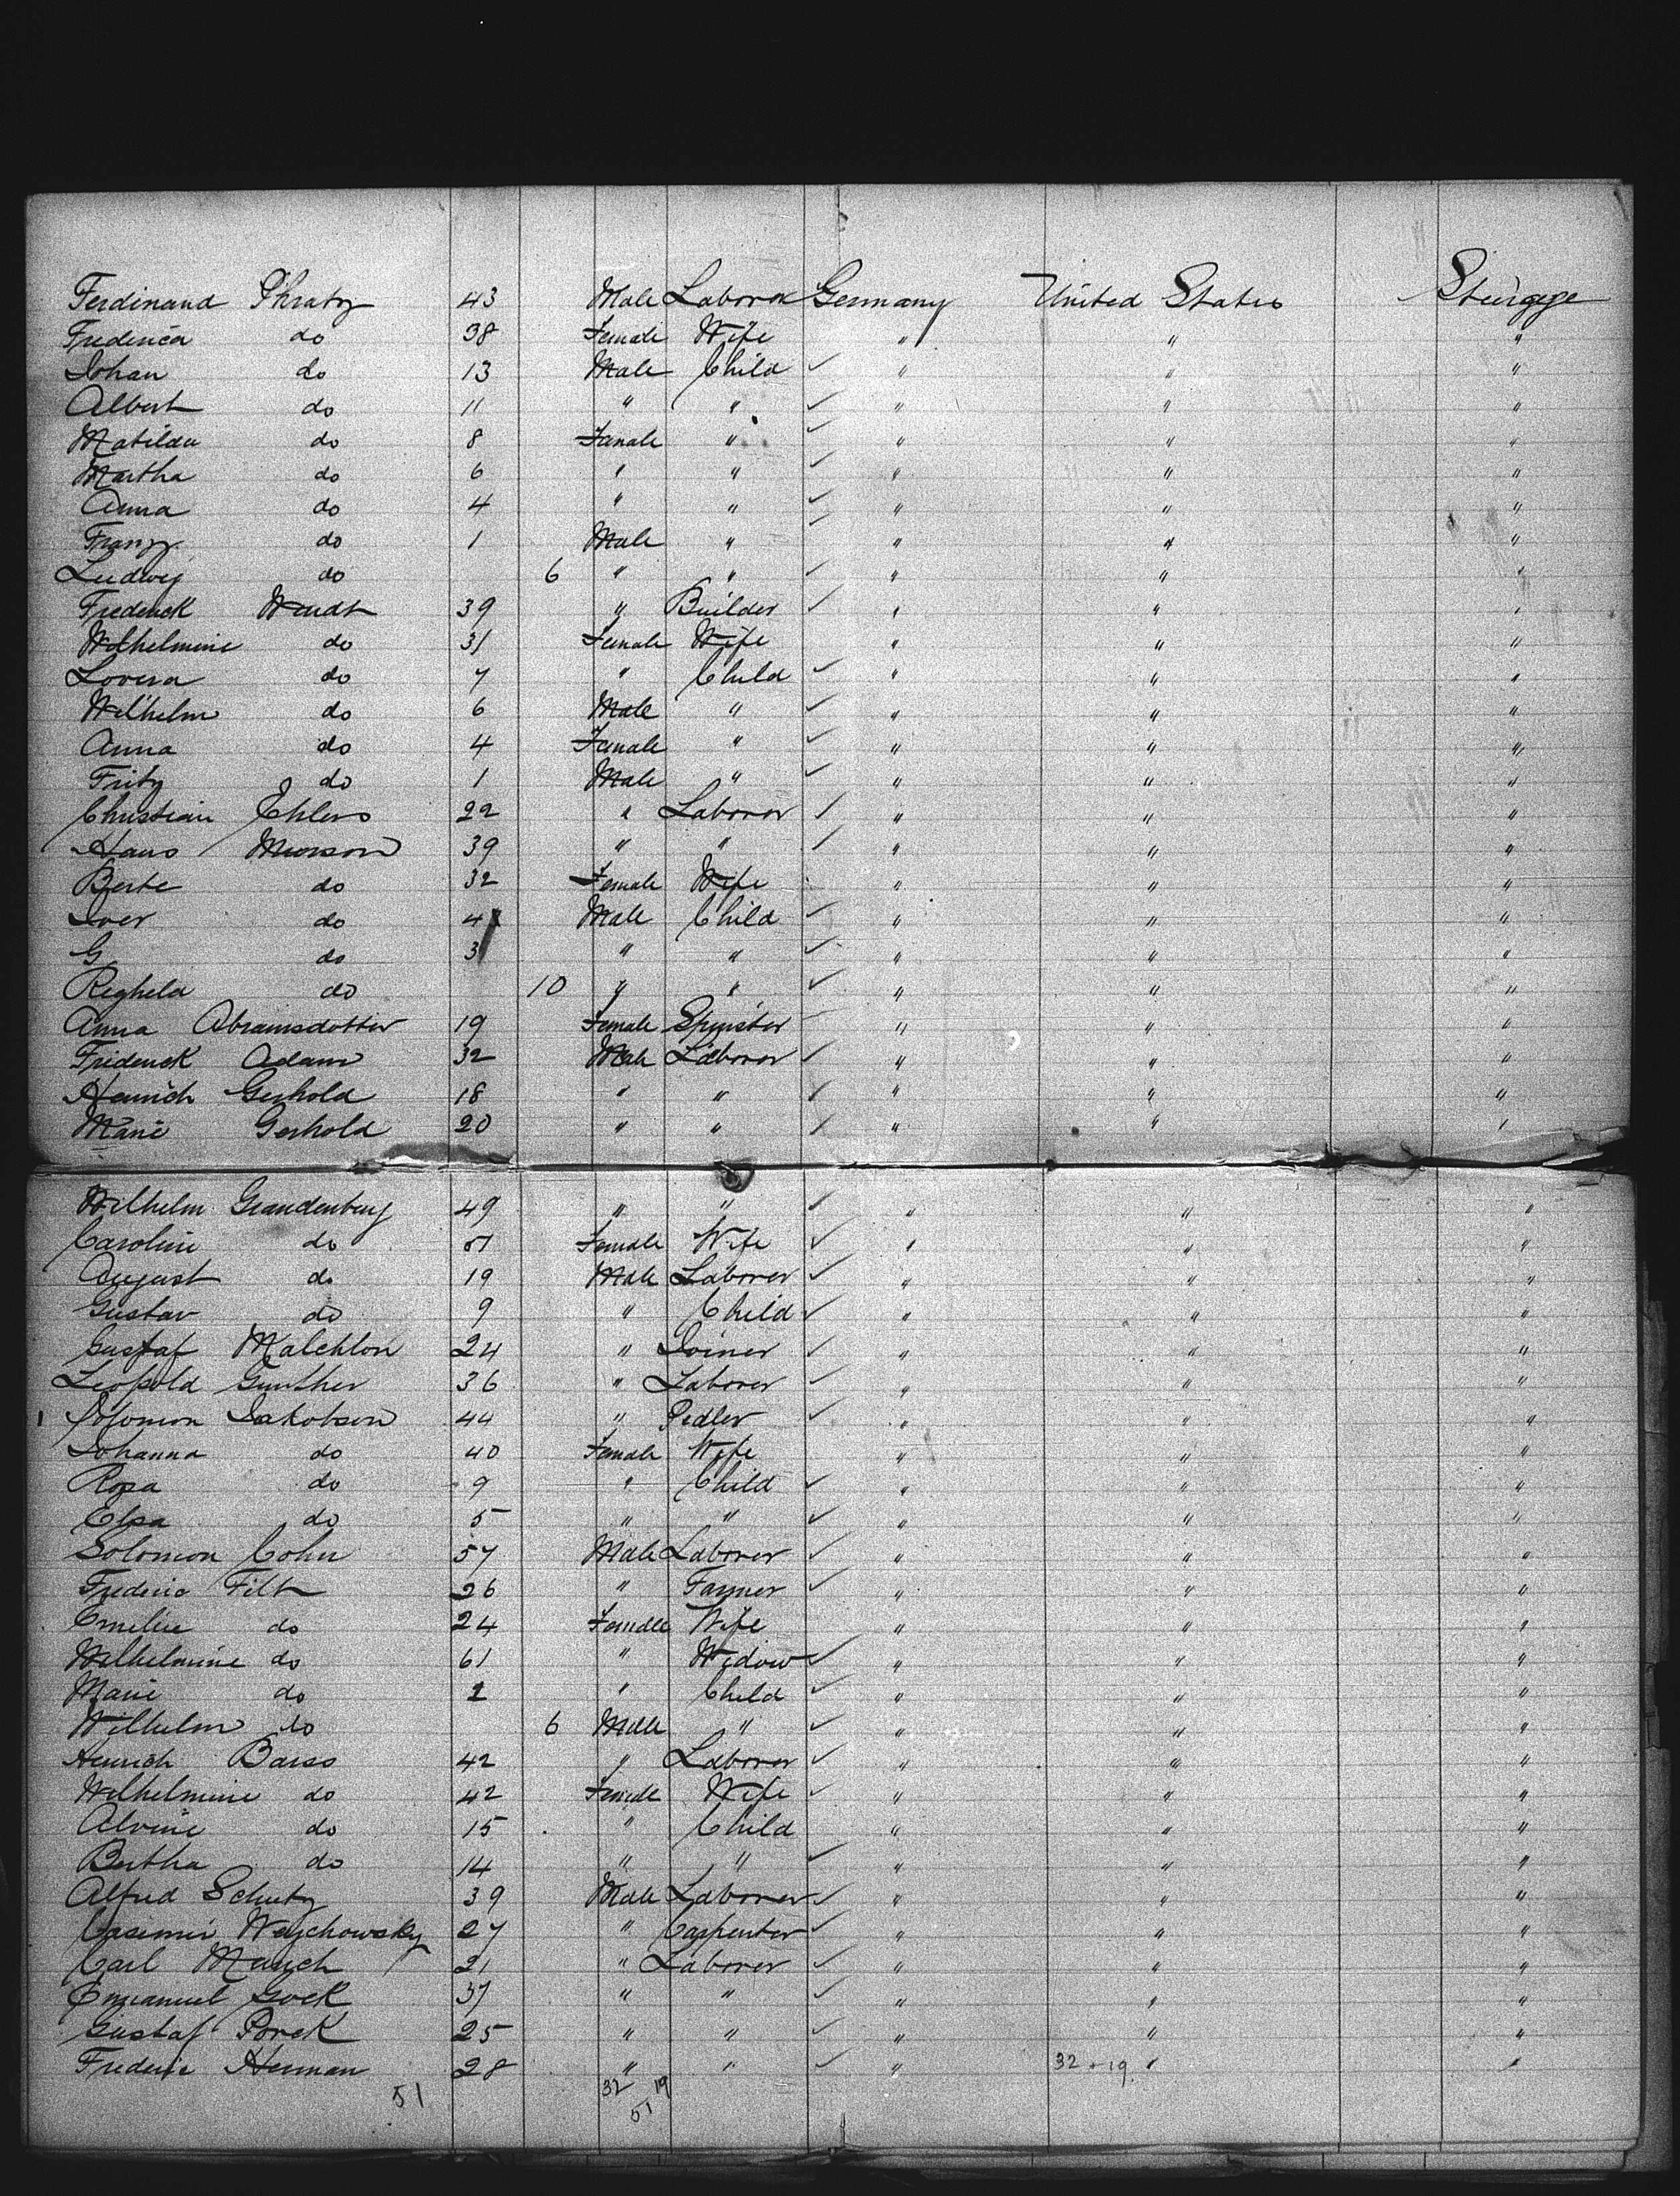 Ferdinand Phratz 43 Male Laborer Germany United States Steerage
Frederica do 38 Female Wife " " "
Johan do 13 Male Child " " "
Albert do 11 " " " " "
Matilda do 8 Female " " " "
Martha do 6 " " " " "
Anna do 4 " " " " "
Franz do 1 Male " " " "
Ludwig do 6 " " " " "
Frederick Wendt 39 " Builder " " "
Wilhelmine do 31 Female Wife " " "
Lovisa do 7 " Child " " "
Wilhelm do 6 Male " " " "
Anna do 4 Female " " " "
Fritz do 1 Male " " " "
Christian Ehlers 22 " Laborer " " "
Hans Monson 39 " " " " "
Berte do 32 Female Wife " " "
Iver do 4 Male Child " " "
G do 3 " " " " "
Reghela do 10 " " " " "
Anna Abramsdotter 19 Female Spinster " " "
Frederick Adam 32 Male Laborer " " "
Heinrich Gerhold 18 " " " " "
Marie Gerhold 20 " " " " "
Wilhelm Grandenberg 49 " " " " "
Caroline do 51 Female Wife " " "
August do 19 Male Laborer " " "
Gustav do 9 " Child " " "
Gustaf Malchlon 24 " Joiner " " "
Leopold Gunther 36 " Laborer " " "
Solomon Jakobson 44 " Pedler " " "
Johanna do 40 Female Wife " " "
Rosa do 9 " Child " " "
Elsa do 5 " " " " "
Solomon Cohn 57 Male Laborer " " "
Frederic Filt 26 " Farmer " " "
Emilie do 24 Female Wife " " "
Wilhelmine do 61 " Widow " " "
Marie do 2 " Child " " "
Wilhelm do 6 Male " " " "
Heinrich Barss 42 " Laborer " " "
Wilhelmine do 42 Female Wife " " "
Alvine do 15 " Child " " "
Bertha do 14 " " " " "
Alfred Schutz 39 Male Laborer " " "
Casimir Waychowsky 27 " Carpenter " " "
Carl Mauch 21 " Laborer " " "
Emanuel Gock 37 " " " " "
Gustaf Porek 25 " " " " "
Frederic Herman 28 " " " 32 + 19 " "
51 32 19
51